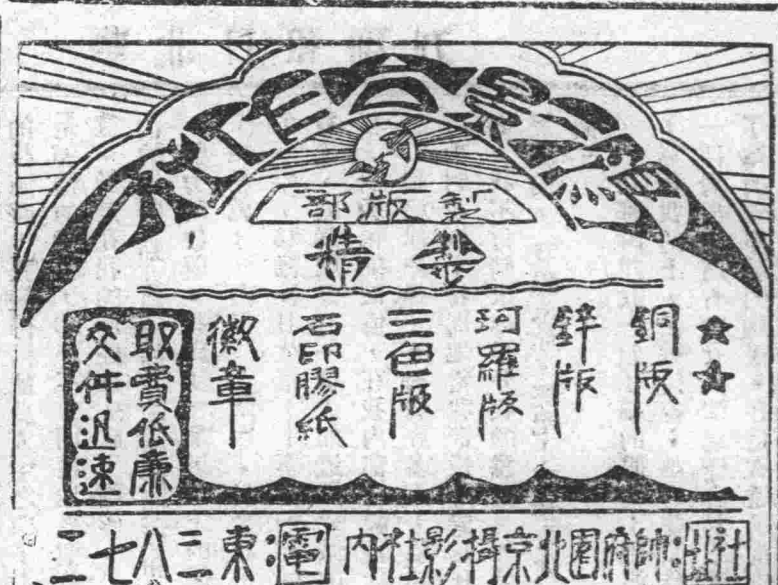 製版部
精製
銅版
鋅版
珂羅版
三色版
石印膠紙
徽章
取費低廉
交件迅速
社址:帥府園北京攝影社内 電:東三八七